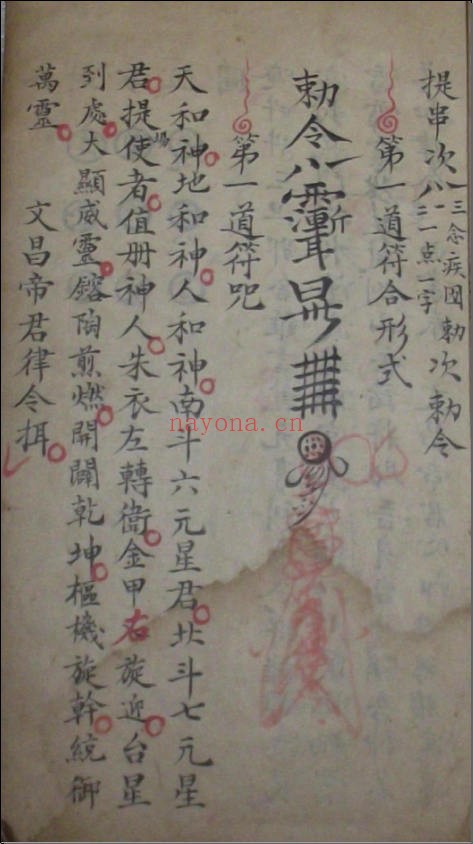 提串次
一三念疾囯勅次勅令
八二一点一字
第一道符合形式
勅令
第一道符咒
天和神地和神人和神南斗六元星君北斗七元星
君提使者值册神人朱衣左轉衛金甲右旋迎台星
到處大顯威靈鎔陶煎燃開闢乾坤樞機旋斡統御
萬靈
文昌帝君律令揖
nayona.cn